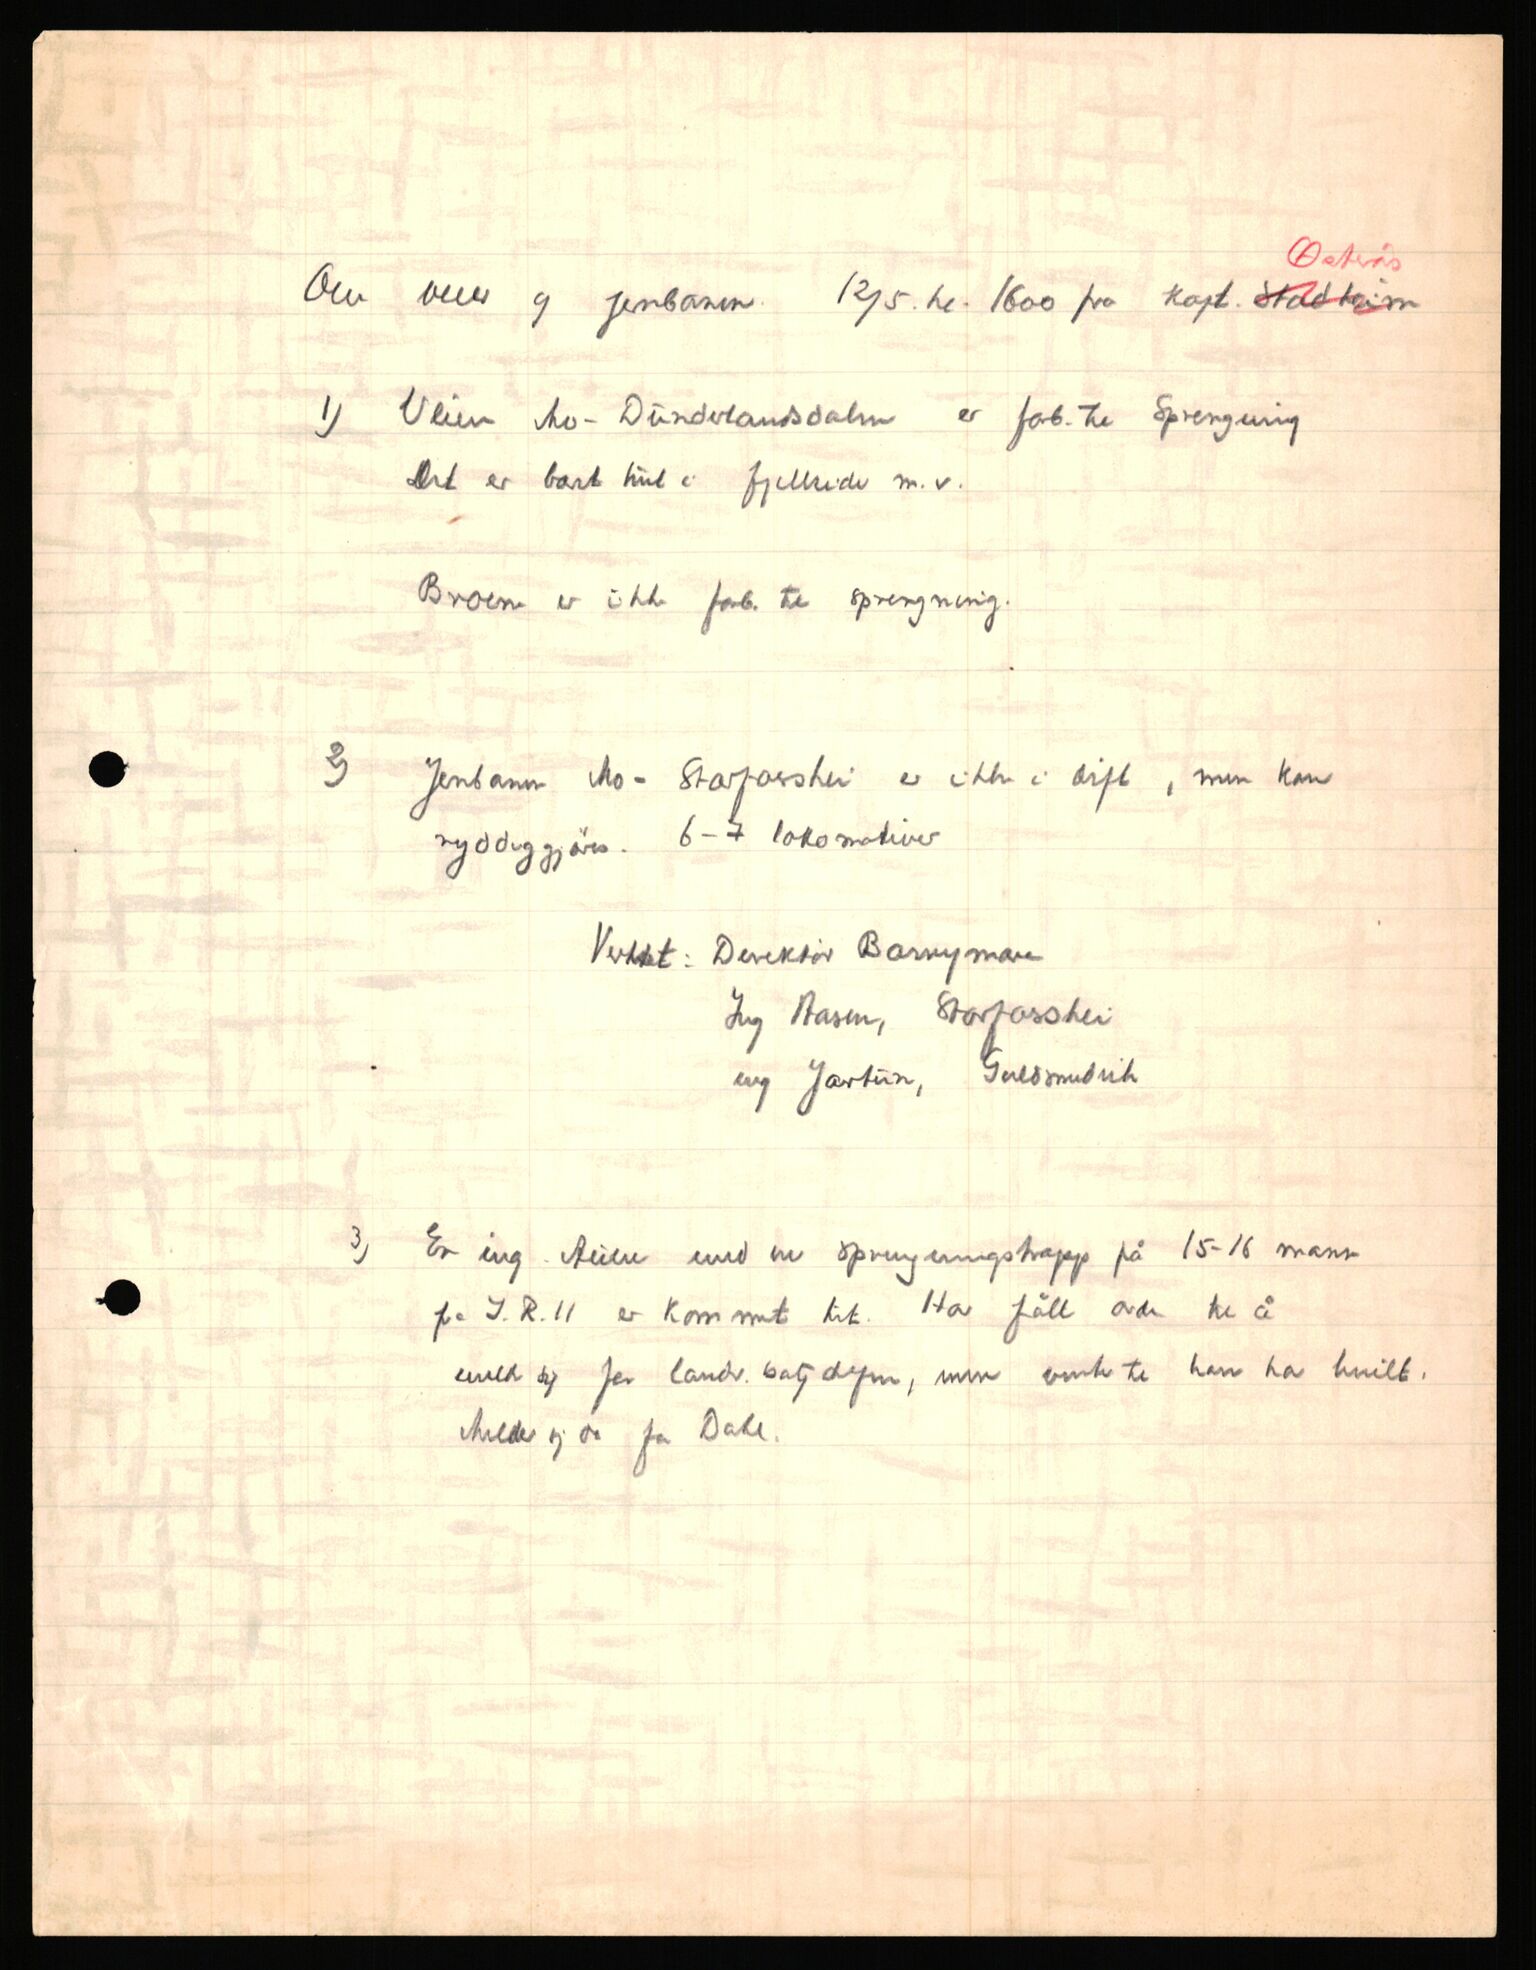 Østerås
Om veier og jernbanen. 12/5. kl. 1600 fra Kapt. Stadheim
1) Veien Mo - Dunderlandsdalen er forb. til Sprengning
Det er bort hul i fjellside m.v.
Broene er ikke forb. til sprengning.
2) Jernbanen Mo - Storforshei er ikke i drift, men kan
ryddiggjøres. 6-7 lokomotiver
Verket: Direktør
Ing Aasen, Storforshei
ing Jartun, Guldsmedvik
3) En ing. med en sprengningstropp på 15-16 mann
fra I.R. 11 er kommet hit. Har fått ordre til å
melde sig for landv. batj. , men vente til han har hvilt.
Melder sig da for Dahl.